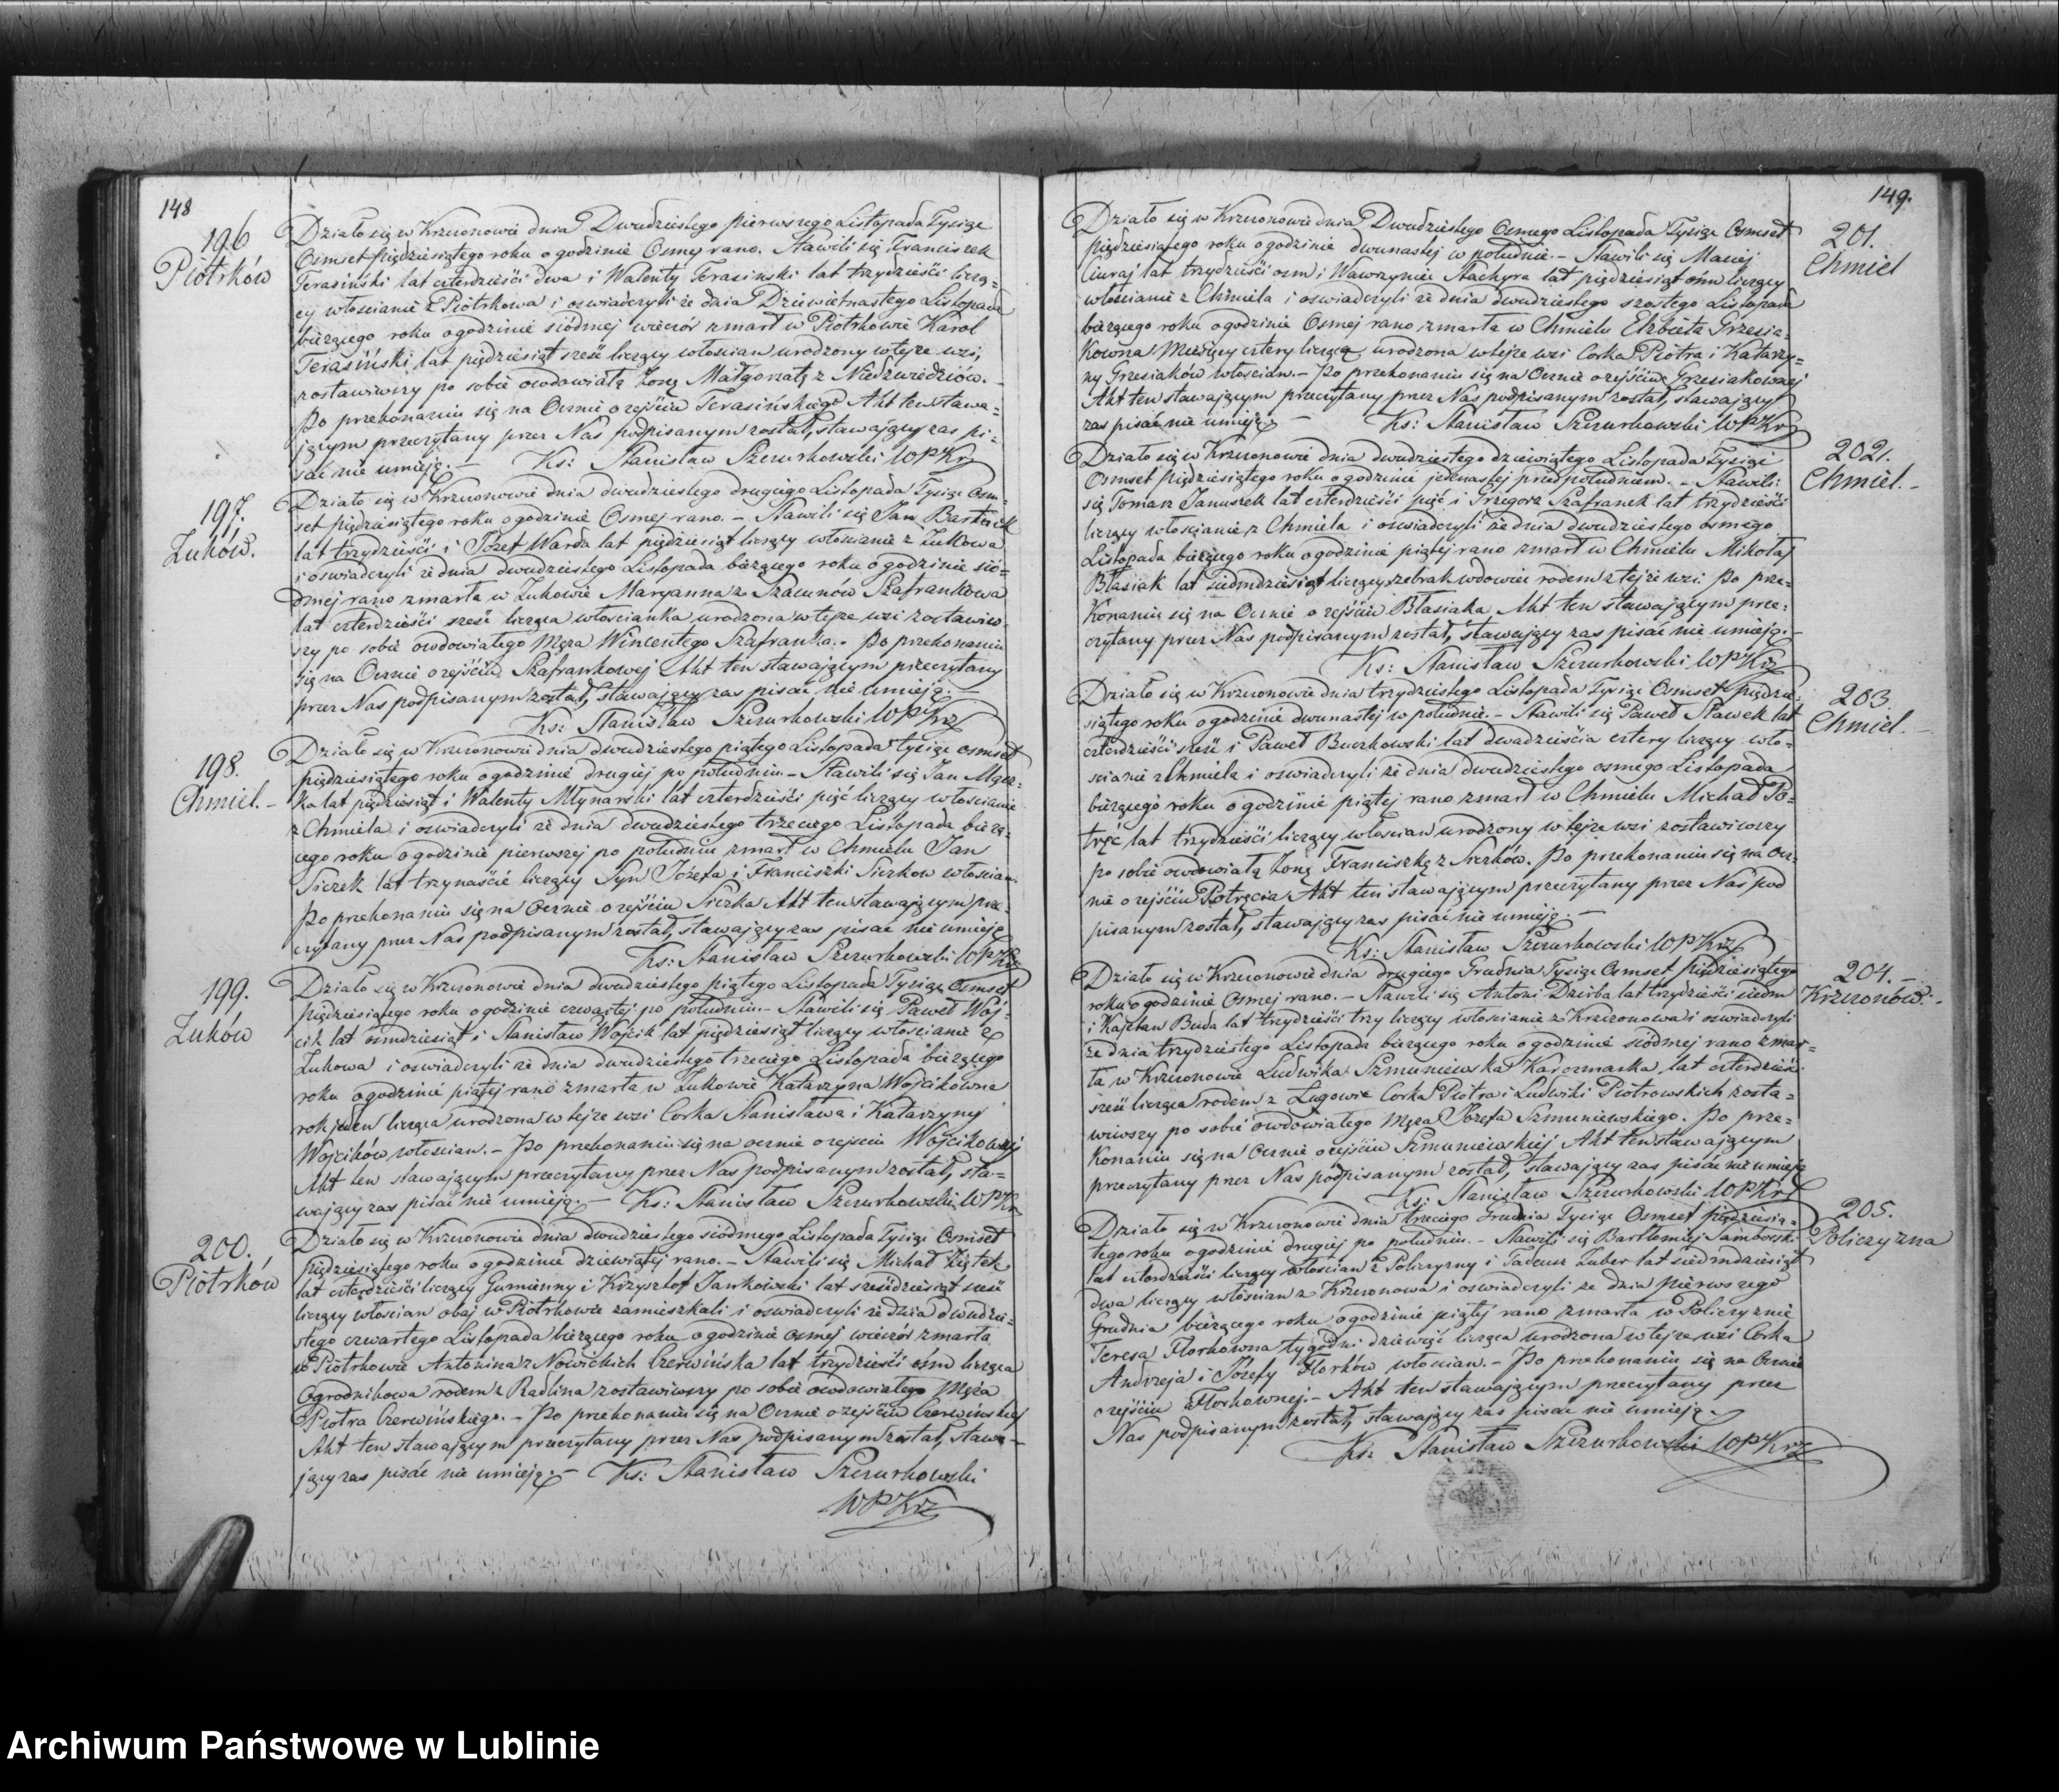 148
196
Piotrków
Działo się w Krzczonowie dnia Dwudziestego pierwszego Listopada Tysiąc
Osmset pięćdziesiątego roku o godzinie Osmej rano. Stawili się Franciszek
Terasiński lat czterdzieści dwa i Walenty Terasiński lat trzydzieści liczą=
cy włościanie z Piotrkowa i oswiadczyli że dnia Dziewietnastego Listopada
bieżącego roku o godzinie siódmej wieczór zmarł w Piotrkowie Karol
Terasiński lat pięćdziesiąt sześć liczący włościan urodzony w tejże wsi,
zostawiwszy po sobie owdowiałą żonę Małgorzatę z Niedźwiedziów. –
Po przekonaniu się na Ocznie o zejściu Terasińskiego Akt ten stawa=
jącym przeczytany przez Nas podpisanym został, stawający zas pi=
sać nie umieją. – Ks: Stanisław Szczurkowski WPKrz
197.
Żuków.
Działo się w Krzczonowie dnia dwudziestego drugiego Listopada Tysiąc Osm=
set pięćdziesiątego roku o godzinie Osmej rano. – Stawili się Jan Bartnik
lat trzydzieści i Józef Warda lat pięćdziesiąt liczący włościanie z Żukowa
i oswiadczyli że dnia dwudziestego Listopada bieżącego roku o godzinie sió=
dmej rano zmarła w Żukowie Maryanna z Szacunów Szafrankowa
lat czterdzieści sześć licząca włościanka urodzona w tejże wsi zostawiw=
szy po sobie owdowiałego Męża Wincentego Szafranka. – Po przekonaniu
się na Ocznie o zejściu Szafrankowej Akt ten stawającym przeczytany
przez Nas podpisanym został, stawający zas pisać nie umieją. –
Ks: Stanisław Szczurkowski WPKrz
198.
Chmiel. –
Działo się w Krzczonowie dnia dwudziestego piątego Listopada tysiąc osmset
pięćdziesiątego roku o godzinie drugiej po południu – Stawili się Jan Mącz=
ka lat pięćdziesiąt i Walenty Młynarski lat czterdzieści pięć liczący włościanie
z Chmiela i oswiadczyli że dnia dwudziestego trzeciego Listopada bieżą=
cego roku o godzinie pierwszej po południu zmarł w Chmielu Jan
Siczek lat trzynaście liczący Syn Józefa i Franciszki Siczków włościan
Po przekonaniu się na Ocznie o zejściu Siczka Akt ten stawającym prze=
czytany przez Nas podpisanym został, stawający zas pisać nie umieją
Ks: Stanisław Szczurkowski WPKrz
199.
Żuków
Działo się w Krzczonowie dnia dwudziestego piątego Listopada Tysiąc Osmset
pięćdziesiątego roku o godzinie czwartej po południu. – Stawili się Paweł Wój=
cik lat osmdziesiąt i Stanisław Wójcik lat pięćdziesiąt liczący włościanie z
Żukowa i oswiadczyli że dnia dwudziestego trzeciego Listopada bieżącego
roku o godzinie piątej rano zmarła w Żukowie Katarzyna Wójcikówna
rok jeden licząca urodzona w tejże wsi Corka Stanisława i Katarzyny
Wojcików włościan. – Po przekonaniu się na ocznie o zejściu Wojcikownej
Akt ten stawającym przeczytany przez Nas podpisanym został, sta=
wający zas pisać nie umieją. – Ks: Stanisław Szczurkowski WPKrz
200.
Piotrków
Działo się w Krzczonowie dnia dwudziestego siódmego Listopada Tysiąc Osmset
pięćdziesiątego roku o godzinie dziewiątej rano. – Stawili się Michał Ziętek
lat czterdzieści liczący Gumienny i Krzysztof Jankowski lat sześćdziesiąt sześć
liczący włościan obaj w Piotrkowie zamieszkali i oswiadczyli że dnia dwudzie=
stego czwartego Listopada bieżącego roku o godzinie osmej wieczór zmarła
w Piotrkowie Antonina z Nowickich Czerwińska lat trzydzieści ośm licząca
Ogrodnikowa rodem z Radlina zostawiwszy po sobie owdowiałego Męża
Piotra Czerwińskiego. – Po przekonaniu się na Ocznie o zejściu Czerwińskiej
Akt ten stawającym przeczytany przez Nas podpisanym został, stawa=
jący zas pisać nie umieją. – Ks: Stanisław Szczurkowski
WPKrz
149.
201.
Chmiel
Działo się w Krzczonowie dnia Dwudziestego Osmego Listopada Tysiąc Osmset
pięćdziesiątego roku o godzinie dwunastej w południe. – Stawili się Maciej
Ciuraj lat trzydzieści osm i Wawrzyniec Stachyra lat pięćdziesiąt ośm liczący
włościanie z Chmiela i oswiadczyli że dnia dwudziestego szostego Listopada
bieżącego roku o godzinie Osmej rano zmarła w Chmielu Elżbieta Grzesia=
kowna Miesięcy cztery licząca, urodzona w tejże wsi Corka Piotra i Katarzy=
ny Grzesiaków włościan. – Po przekonaniu się na Ocznie o zejściu Grzesiakownej
Akt ten stawającym przeczytany przez Nas podpisanym został, stawający
zas pisać nie umieją. – Ks: Stanisław Szczurkowski WPKrz
202.
Chmiel. –
Działo się w Krzczonowie dnia dwudziestego dziewiątego Listopada Tysiąc
Osmset pięćdziesiątego roku o godzinie jedenastej przed południem. – Stawili
się Tomasz Januszek lat czterdzieści pięć i Grzegorz Szafranek lat trzydzieści
liczący włościanie z Chmiela i oswiadczyli że dnia dwudziestego osmego
Listopada bieżącego roku o godzinie piątej rano zmarł w Chmielu Mikołaj
Błasiak lat siedmdziesiąt liczący żebrak wdowiec rodem z tejże wsi. Po prze=
konaniu się na Ocznie o zejściu Błasiaka Akt ten stawającym prze=
czytany przez Nas podpisanym został, stawający zas pisać nie umieją. –
Ks: Stanisław Szczurkowski WPKrz
203.
Chmiel. –
Działo się w Krzczonowie dnia trzydziestego Listopada Tysiąc Osmset pięćdzie=
siątego roku o godzinie dwunastej w południe. – Stawili się Paweł Sławek lat
czterdzieści sześć i Paweł Buczkowski lat dwadzieścia cztery liczący wło=
scianie z Chmiela i oswiadczyli że dnia dwudziestego osmego Listopada
bieżącego roku o godzinie piątej rano zmarł w Chmielu Michał Po=
tręć lat trzydzieści liczący włościan urodzony w tejże wsi zostawiwszy
po sobie owdowiałą żonę Franciszkę z Siczków. Po przekonaniu się na Ocz=
nie o zejściu Potręcia Akt ten stawającym przeczytany przez Nas pod
pisanym został, stawający zas pisać nie umieją. –
Ks: Stanisław Szczurkowski WPKrz
204. –
Krzczonów. –
Działo się w Krzczonowie dnia drugiego Grudnia Tysiąc Osmset pięćdziesiątego
roku o godzinie Osmej rano. – Stawili się Antoni Dzirba lat trzydzieści siedm
i Kajetan Buda lat trzydzieści trzy liczący włościanie z Krzczonowa i oswiadczyli
że dnia trzydziestego Listopada bieżącego roku o godzinie siódmej rano zmar=
ła w Krzczonowie Ludwika Szmuniewska Karczmarka lat czterdzieści
sześć licząca rodem z Ługowic Corka Piotra i Ludwiki Piotrowskich zosta=
wiwszy po sobie owdowiałego Męża Józefa Szmuniewskiego. Po prze=
konaniu się na Ocznie o zejściu Szmuniewskiej Akt ten stawającym
przeczytany przez Nas podpisanym został, stawający zas pisać nie umieją
Ks: Stanisław Szczurkowski WPKrz
205.
Policzyzna
Działo się w Krzczonowie dnia trzeciego Grudnia Tysiąc Osmset pięćdziesią=
tego roku o godzinie drugiej po południu. – Stawili się Bartłomiej Samborski
lat czterdzieści liczący włościan z Policzyzny i Tadeusz Zuber lat siedmdziesiąt
dwa liczący włościan z Krzczonowa i oswiadczyli że dnia pierwszego
Grudnia bieżącego roku o godzinie piątej rano zmarła w Policzyznie
Teresa Florkowna tygodni dziewięć licząca urodzona w tejże wsi Corka
Andrzeja i Józefy Florków włościan. – Po przekonaniu się na Ocznie
o zejściu Florkownej. – Akt ten stawającym przeczytany przez
Nas podpisanym został, stawający zas pisać nie umieją.
Ks: Stanisław Szczurkowski WPKrz
Archiwum Państwowe w Lublinie